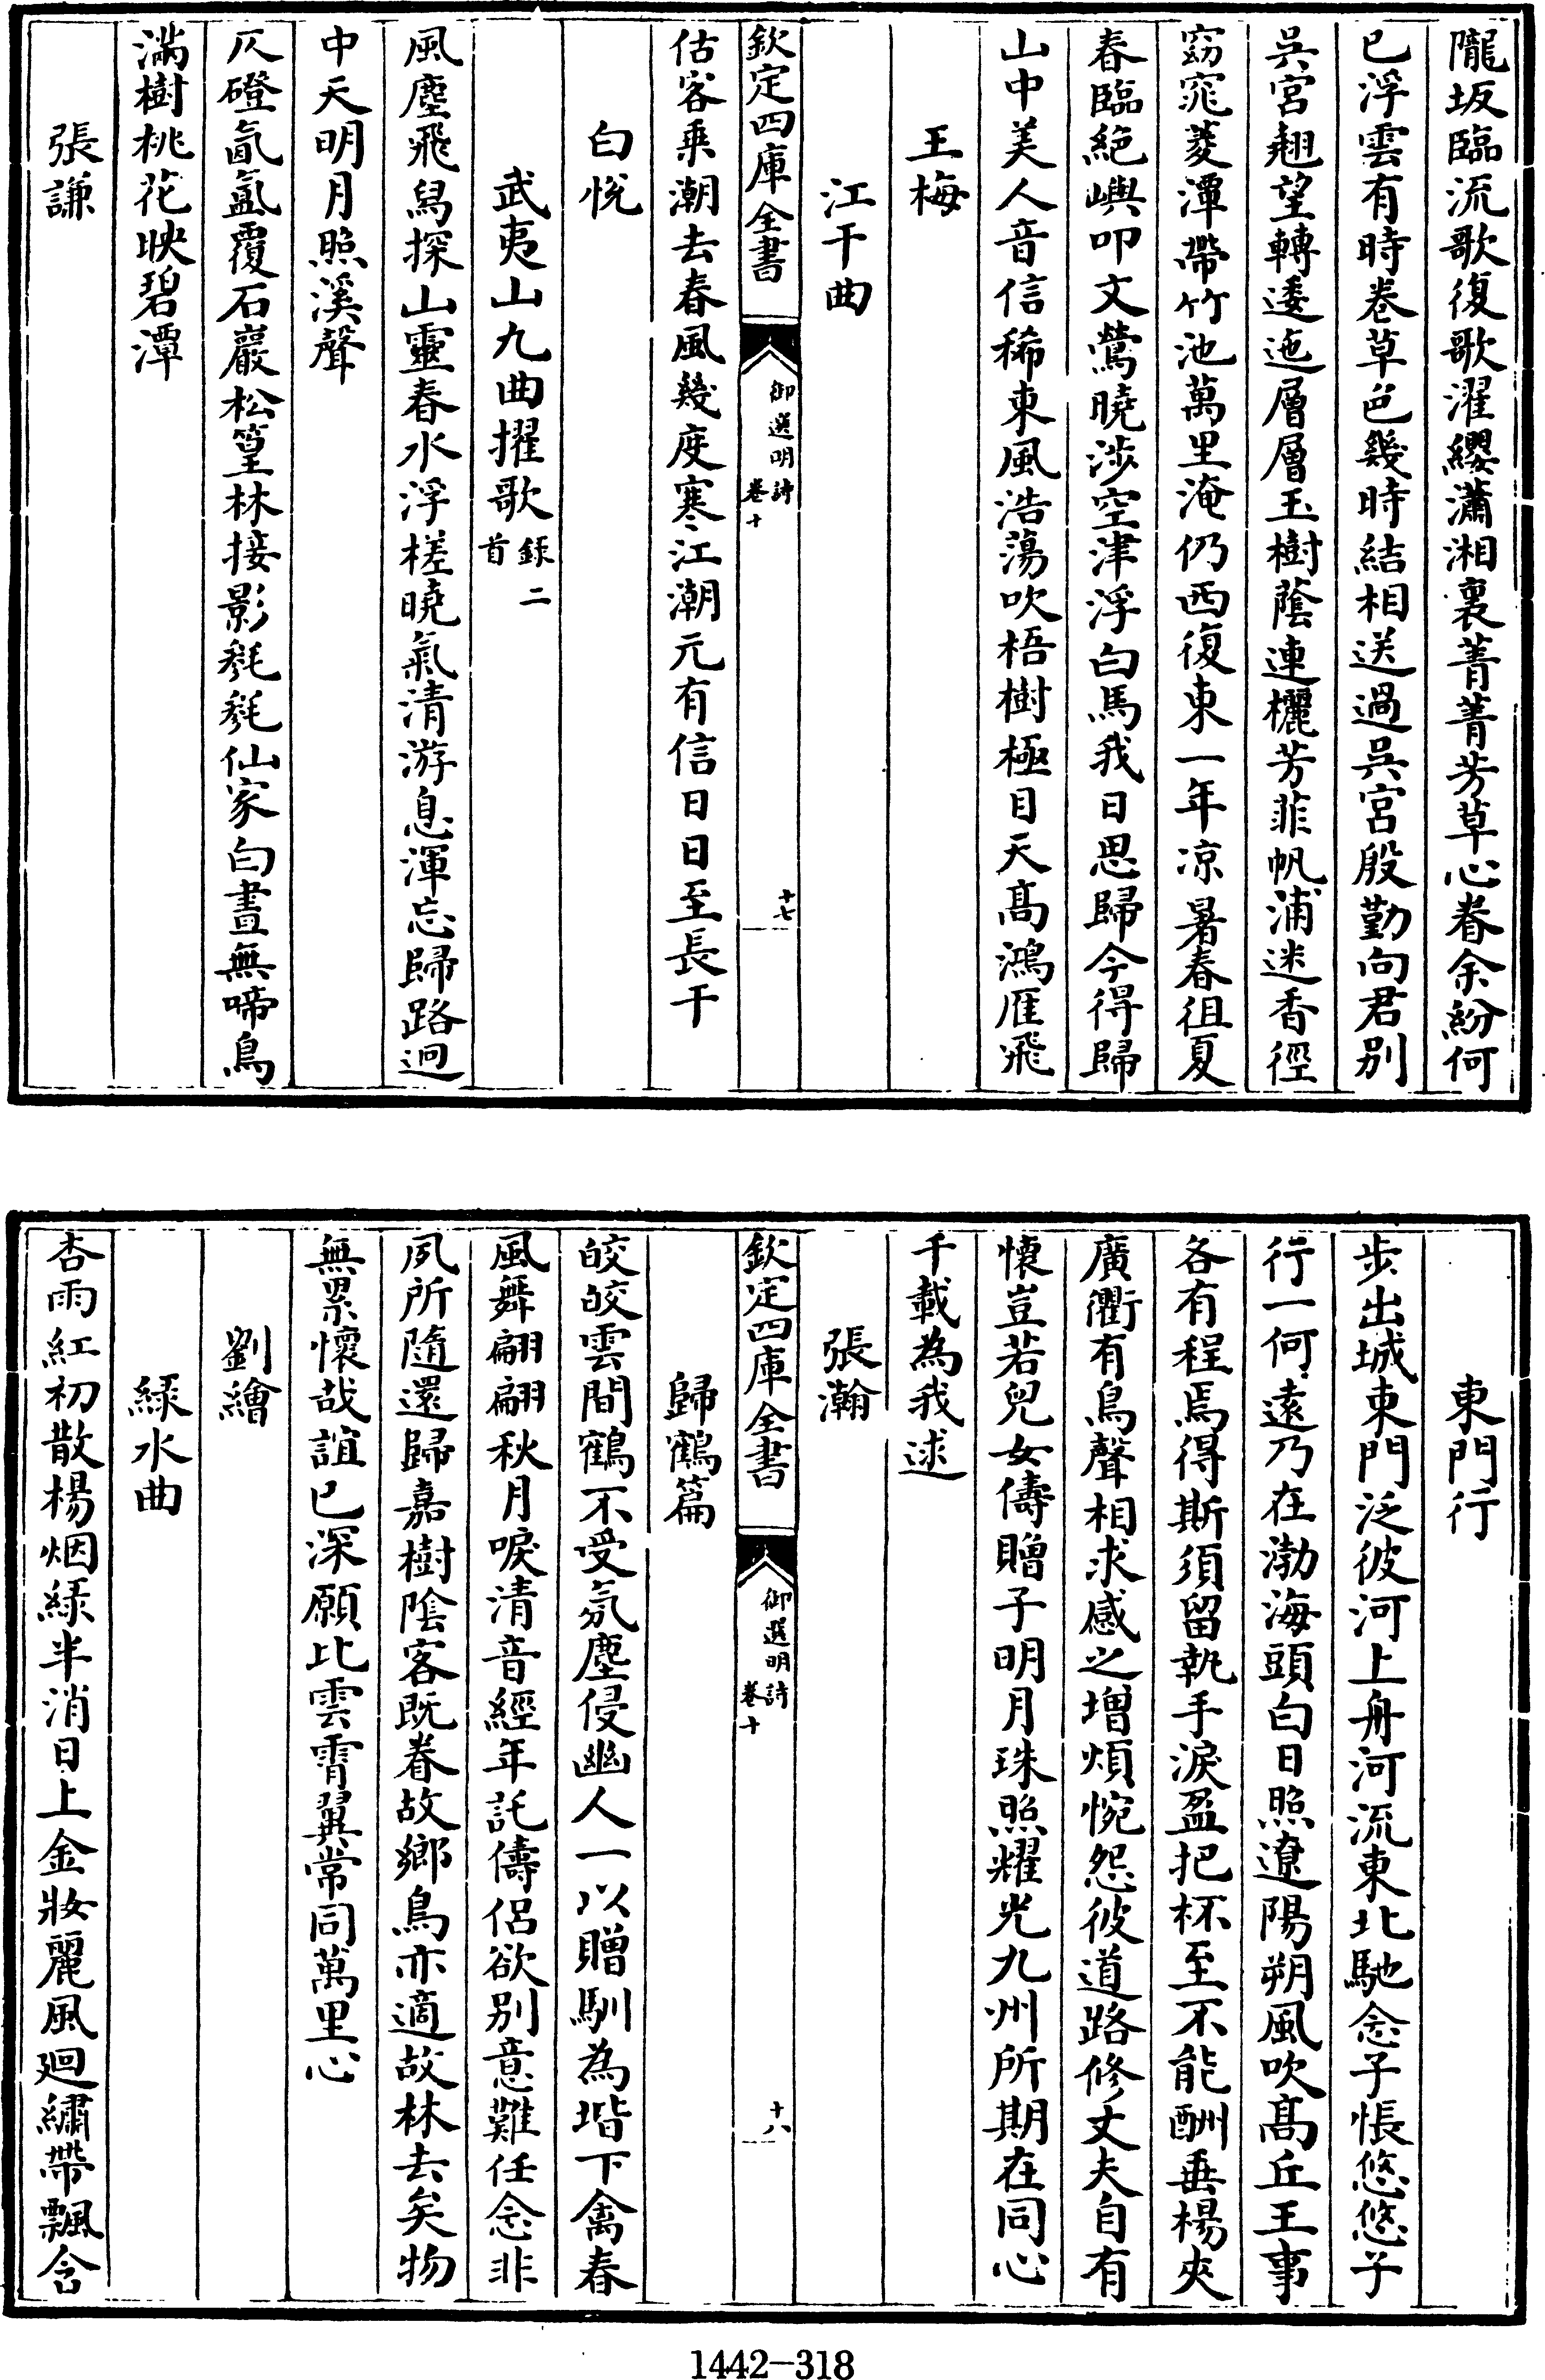 隴坂臨流歌復歌濯纓瀟湘裏菁菁芳草心眷余紛何
已浮雲有時卷草色幾時結相送過吳宮殷勤向君别
吳宮翹望轉逶迤層層玉樹蔭連欐芳菲帆浦迷香徑
窈窕菱潭帶竹池萬里淹仍西復東一年凉暑春徂夏
春臨絶嶼叩文鶯曉涉空津浮白馬我日思歸今得歸
山中美人音信稀東風浩蕩吹梧樹極目天髙鴻雁飛
王梅
江干曲
欽定四庫全書
御選明詩
卷十
十七
估客乘潮去春風幾度寒江潮元有信日日至長干
白悅
武夷山九曲擢歌録二首
風塵飛舄探山靈春水浮槎曉氣清游息渾忘歸路迥
中天明月照溪聲
仄磴氤氲覆石巖松篁林接影毿毿仙家白晝無啼鳥
滿樹桃花映碧潭
張謙
東門行
步出城東門泛彼河上舟河流東北馳念子悵悠悠子
行一何遠乃在渤海頭白日照遼陽朔風吹髙丘王事
各有程焉得斯須留執手淚盈把杯至不能酬垂楊夾
廣衢有鳥聲相求感之增煩惋怨彼道路修丈夫自有
懷豈若兒女儔贈子明月珠照耀光九州所期在同心
千載為我逑
張瀚
欽定四庫全書
御選明詩
卷十
十八
歸鶴篇
皎皎雲間鶴不受氛塵侵幽人一以贈馴為堦下禽春
風舞翩翩秋月唳清音經年託儔侶欲别意難任念非
夙所隨還歸嘉樹陰客既眷故鄉鳥亦適故林去矣物
無累懷哉誼已深願比雲霄翼常同萬里心
劉繪
緑水曲
杏雨紅初散楊烟緑半消日上金妝麗風廻繡帶飄含
1442-318